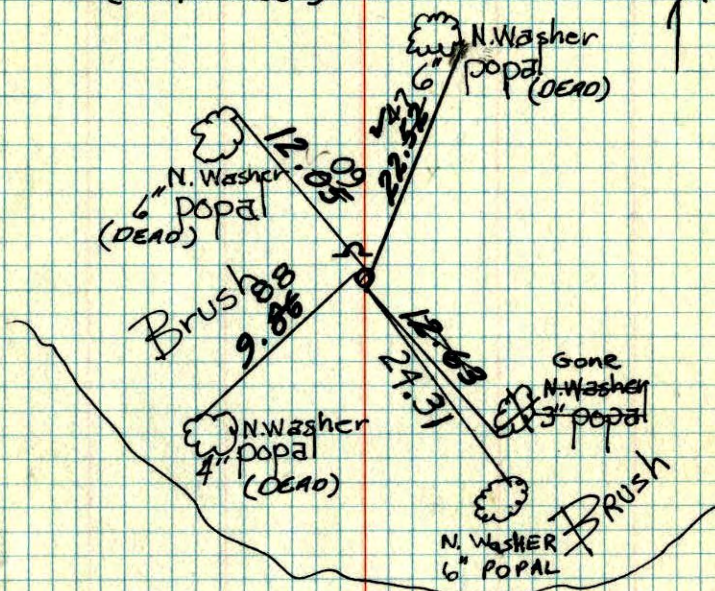 N.Washer
6" popal
(DEAD)
22.52
12.05
09
N. Washer
6" popal
(DEAD)
Brush
88
9.86
12.63
24.31
Gone
N.Washer
3" popal
N.Washer
popal
4"
(DEAD)
BRUSH
N. WASHER
6" POPAL